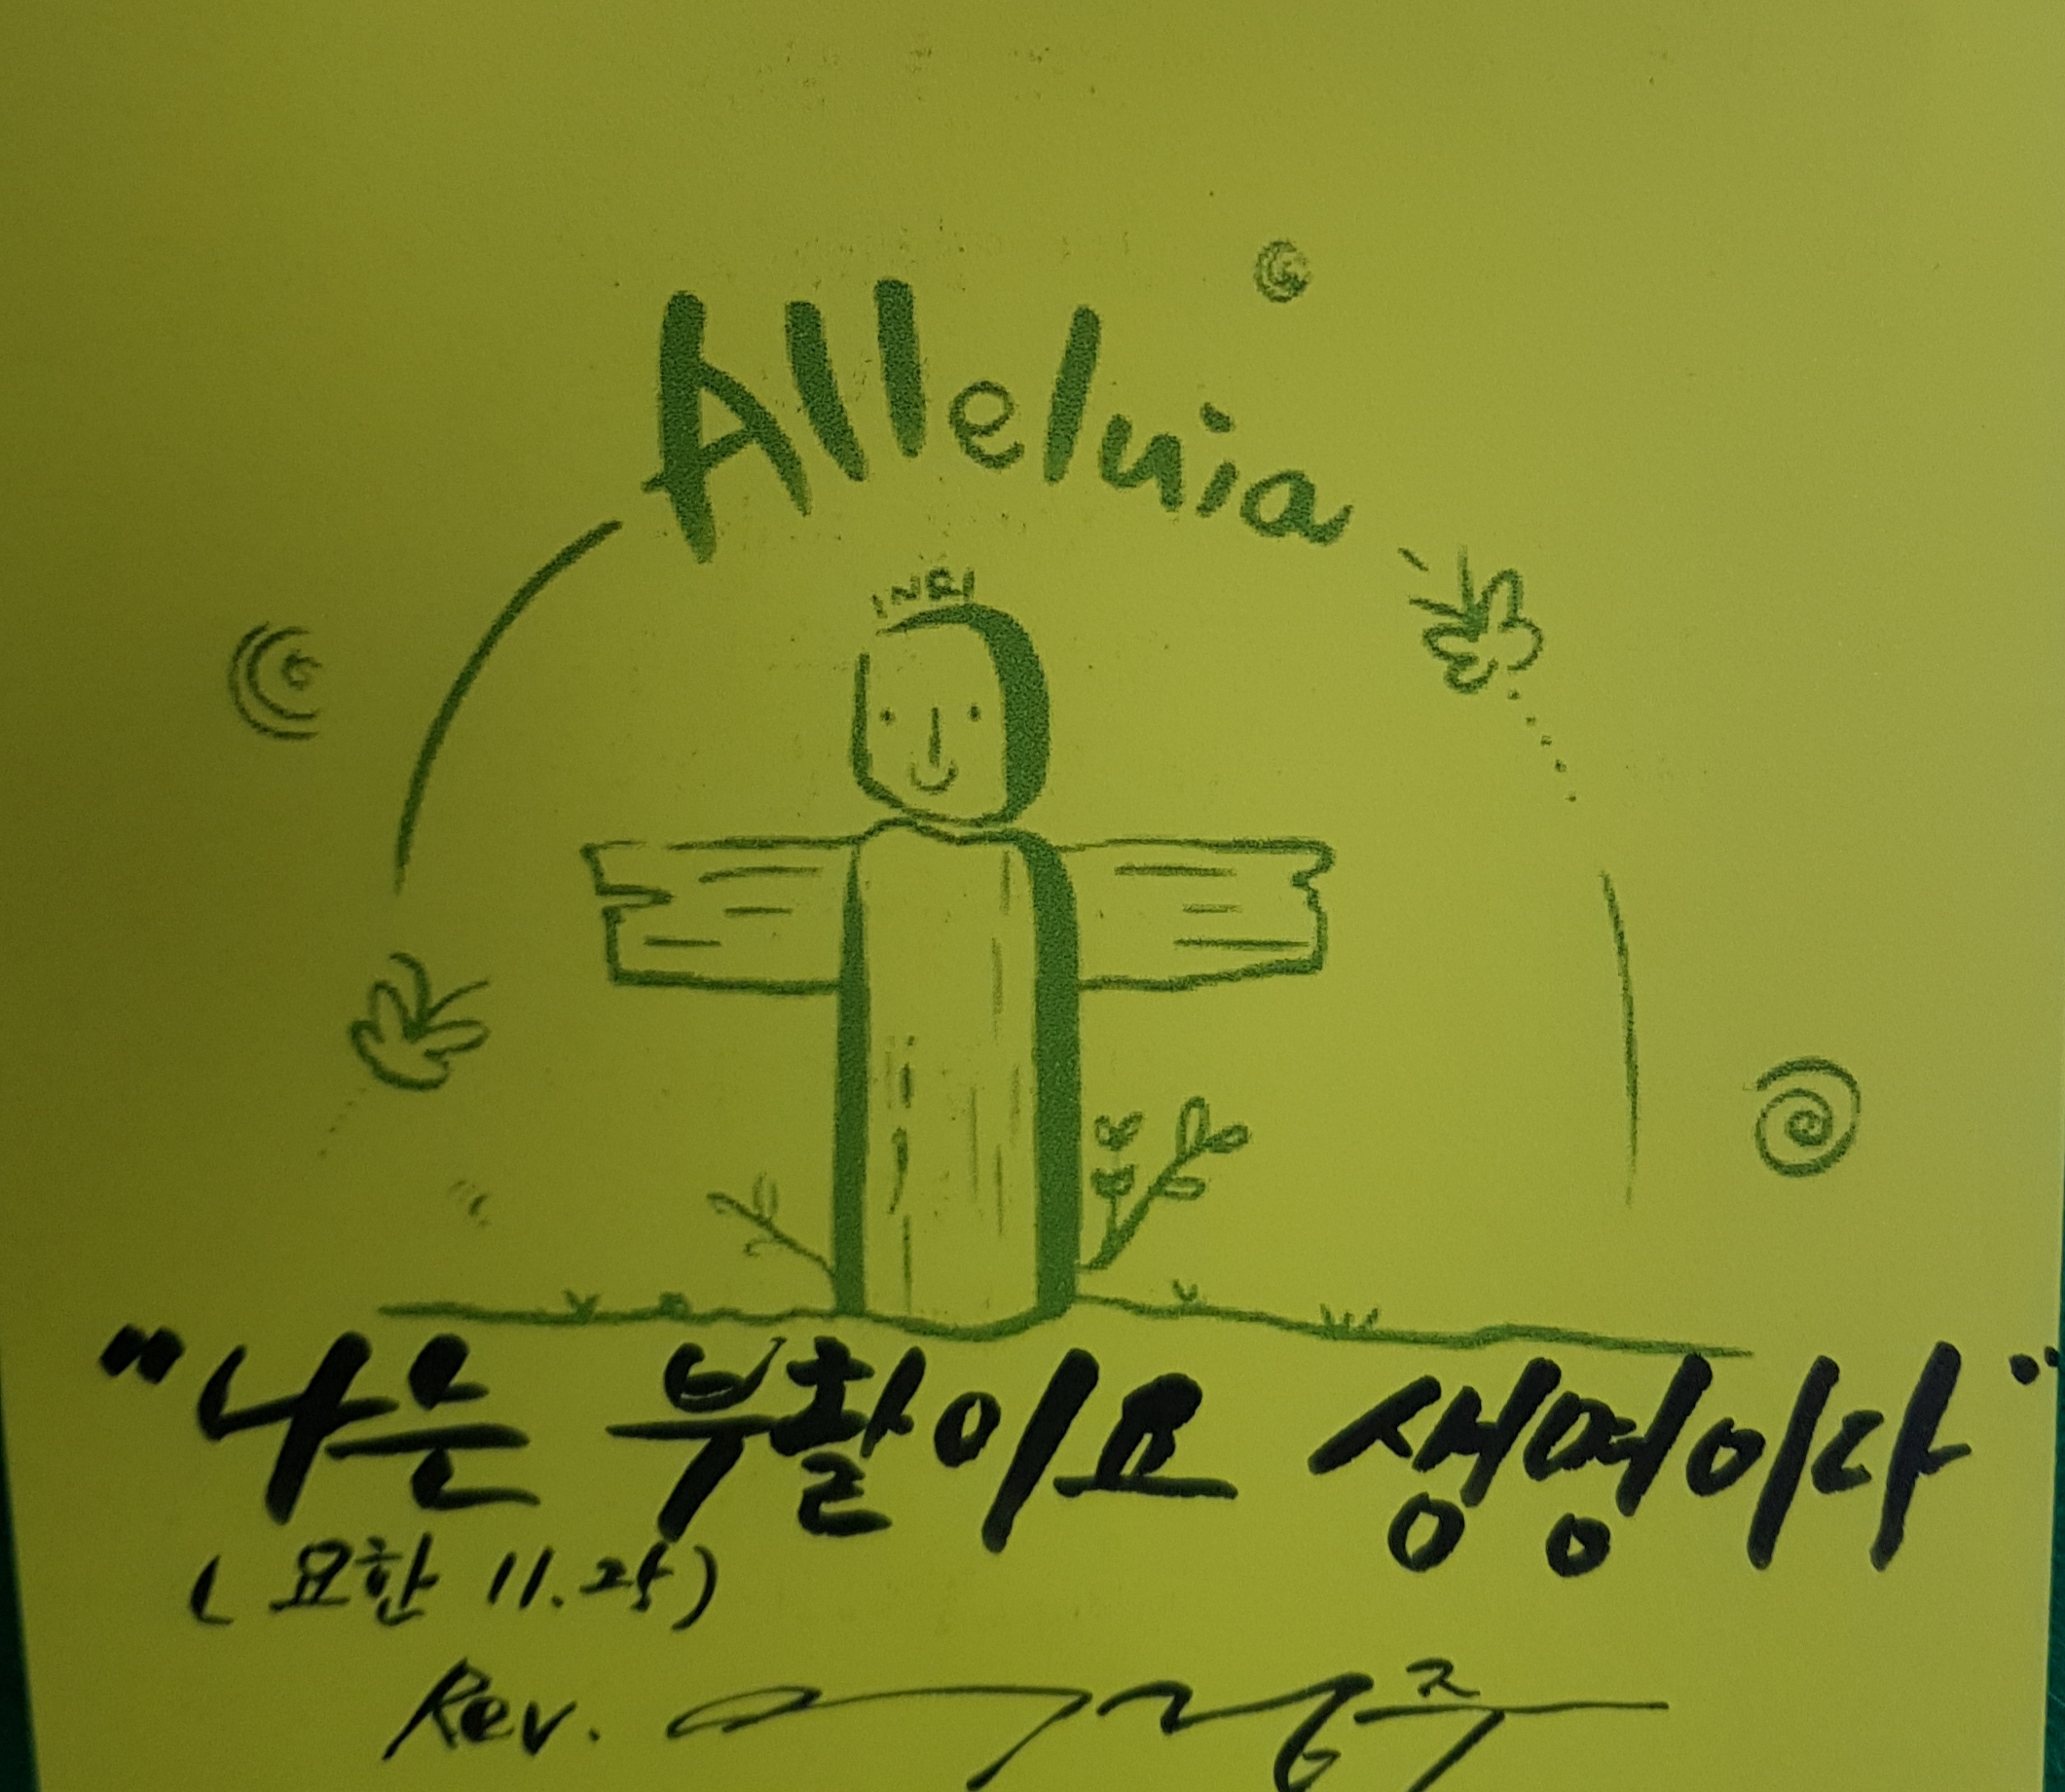 Alleluia
INRI
"나는 부활이요 생명이다"
(요한 11.25)
Rev.